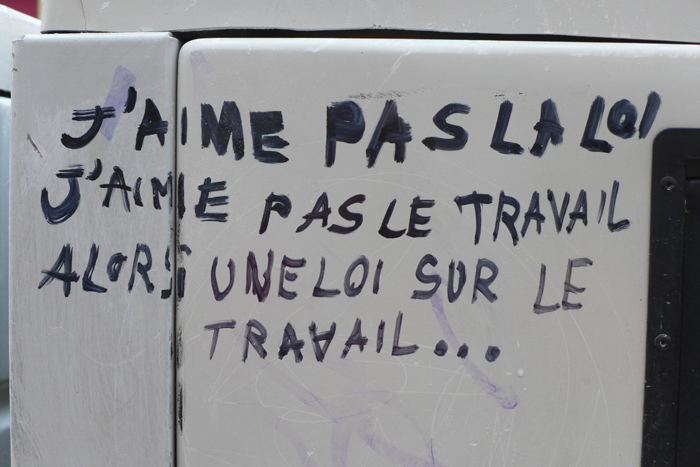 J'AIME PAS LA LOI
J'AIME PAS LE TRAVAIL
ALORS UNE LOI SUR LE
TRAVAIL...